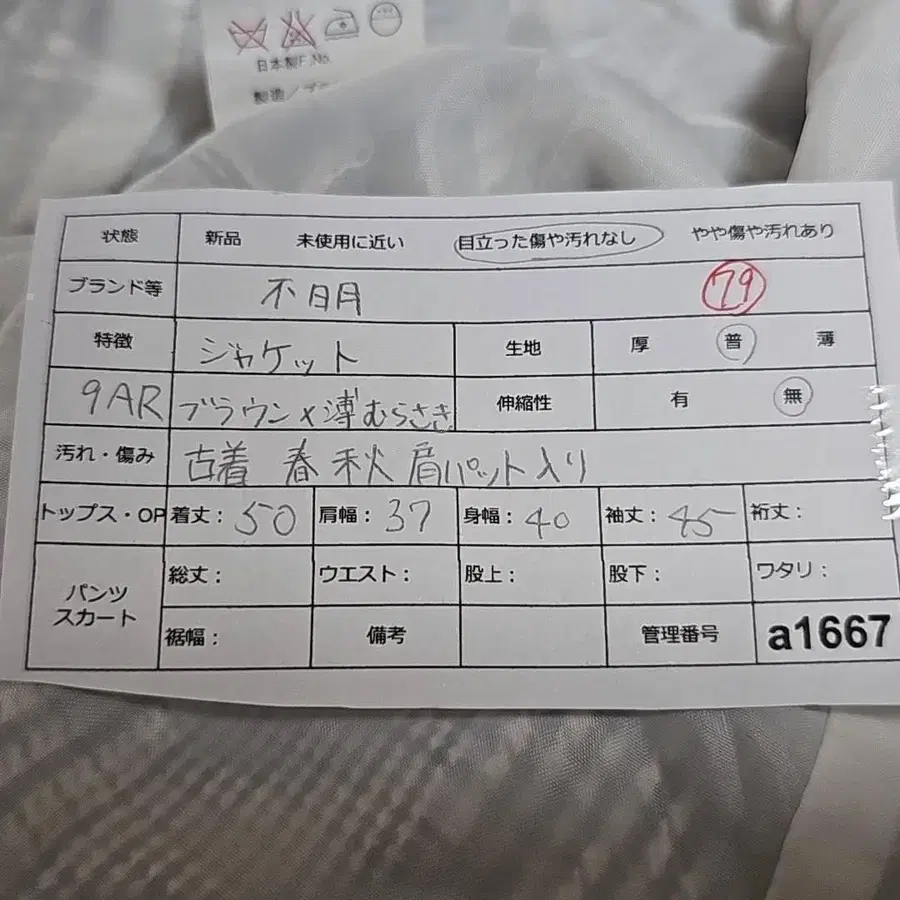 日本製F.No.
状態 新品 未使用に近い 目立った傷や汚れなし やや傷や汚れあり
ブランド等 不明 79
特徴 ジャケット 生地 厚 普 薄
9AR ブラウン×薄むらさき 伸縮性 有 無
汚れ・傷み 古着 春秋 肩パット入り
トップス・OP 着丈: 50 肩幅: 37 身幅: 40 袖丈: 45 裄丈:
パンツ スカート 総丈: ウエスト: 股上: 股下: ワタリ:
裾幅: 備考 管理番号 a1667